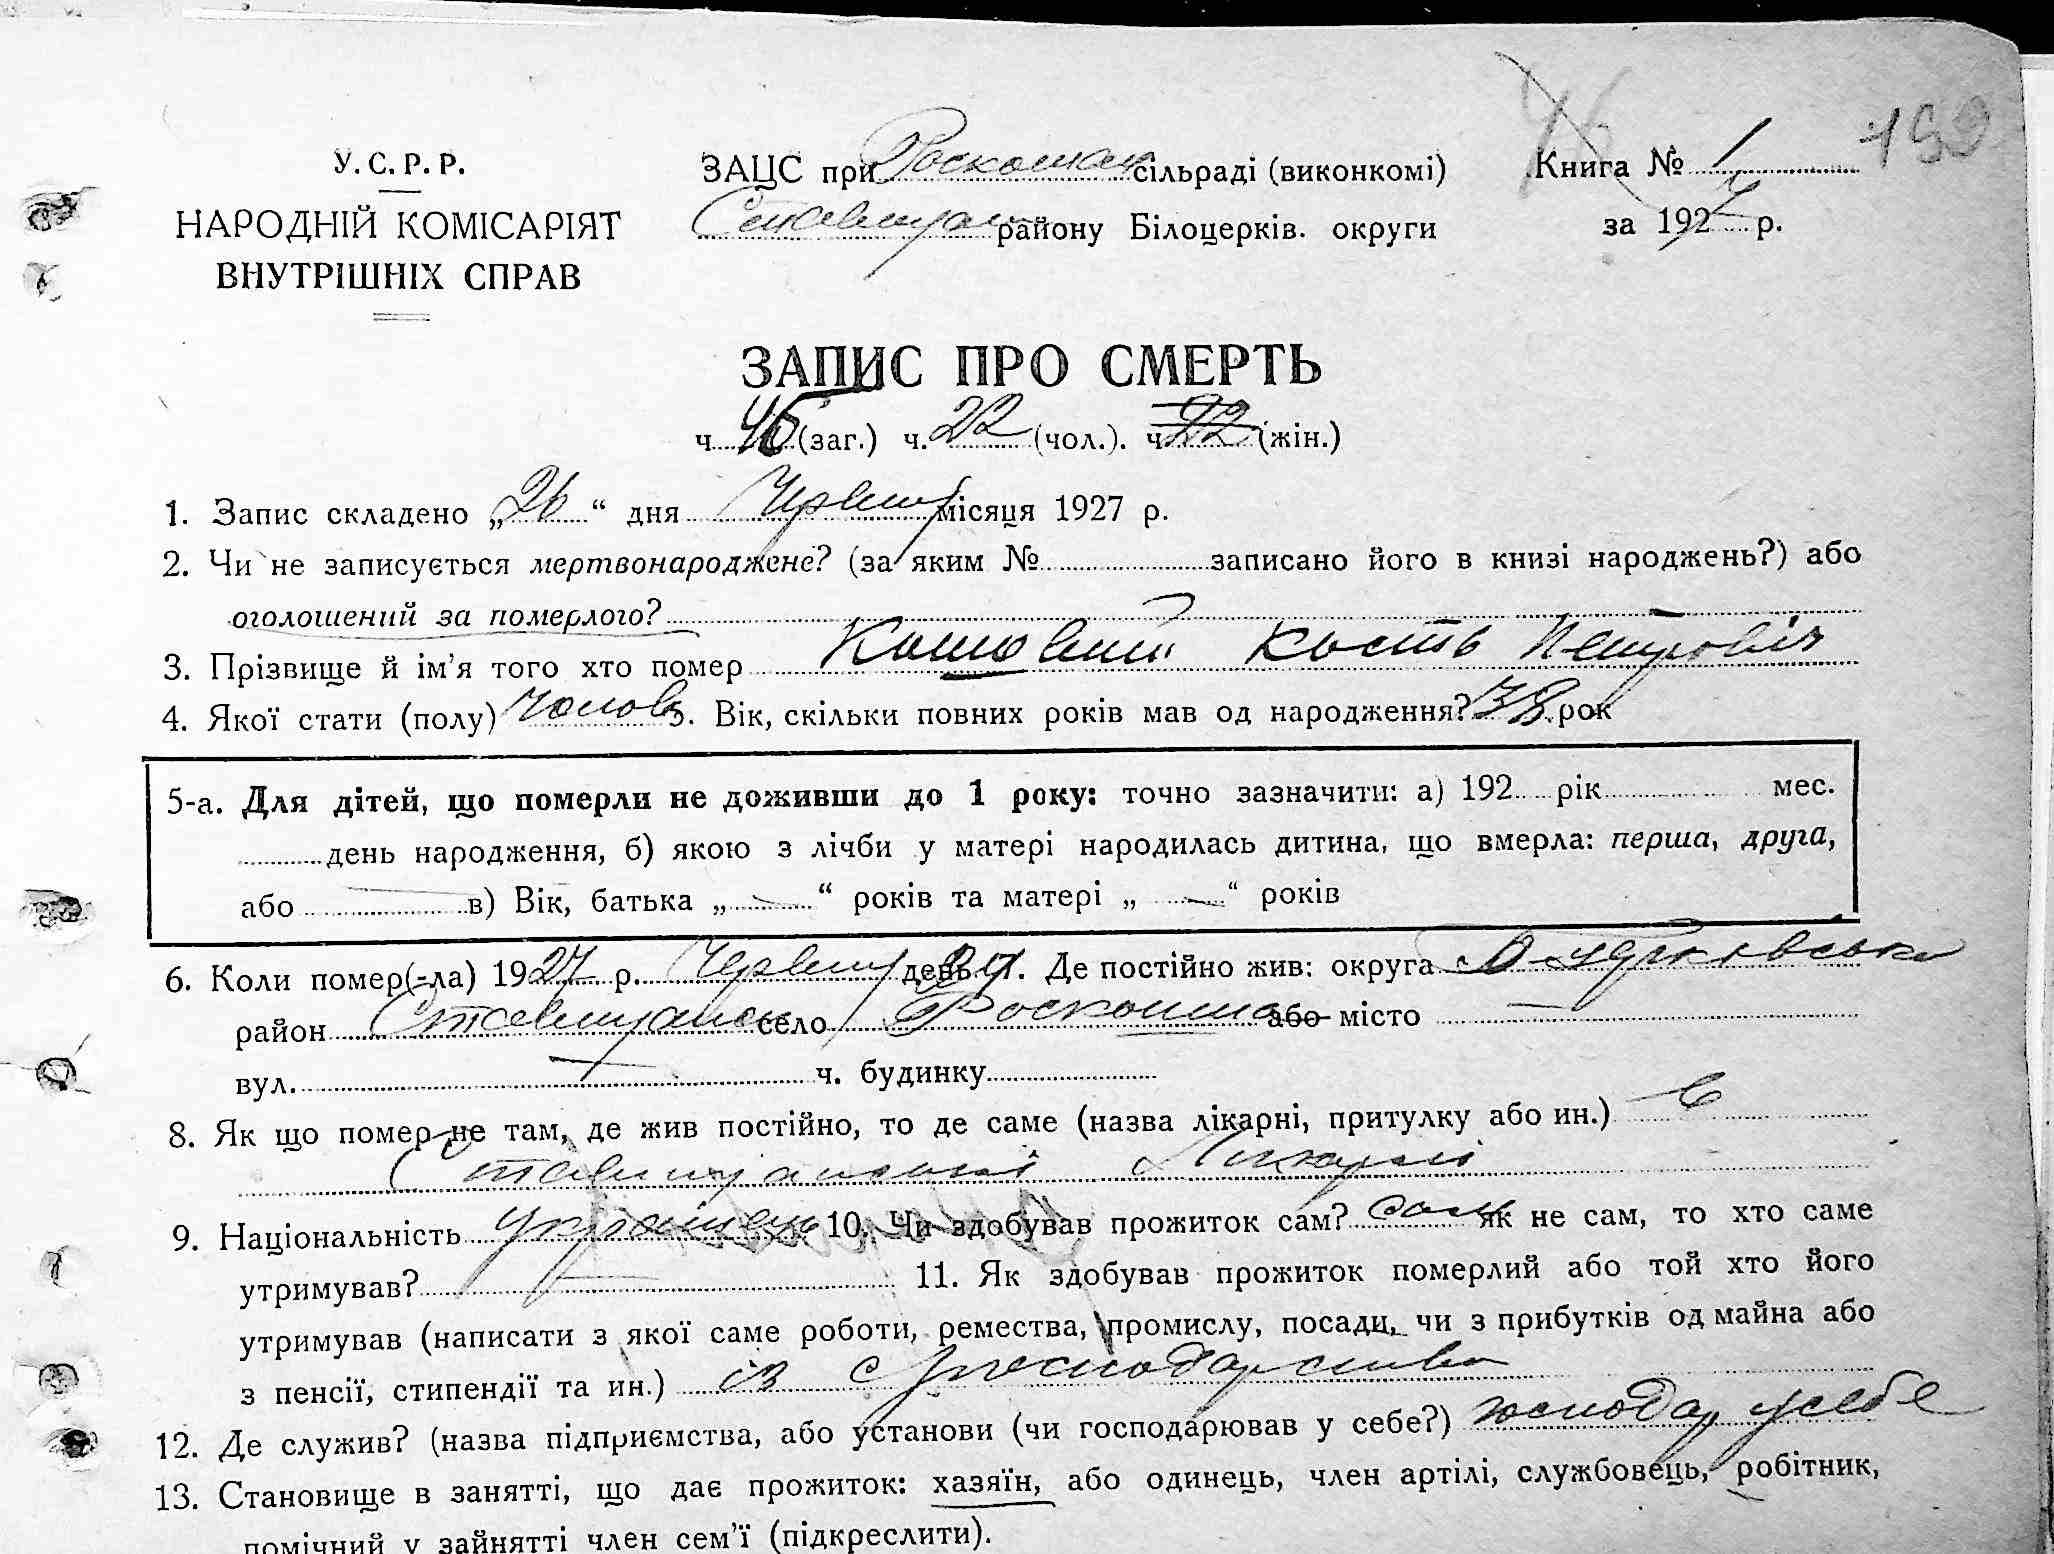 У.С.Р.Р.
НАРОДНІЙ КОМІСАРІЯТ
ВНУТРІШНІХ СПРАВ
ЗАЦС при Роскошан сільраді (виконкомі)
Ставищан району Білоцерків. округи
Книга № 1
за 1927 р.
ЗАПИС ПРО СМЕРТЬ
ч. 46 (заг.) ч. 22 (чол.). ч. 22 (жін.)
1. Запис складено „26“ дня Червня місяця 1927 р.
2. Чи не записується мертвонароджене? (за яким № записано його в книзі народжень?) або
оголошений за померлого?
3. Прізвище й ім’я того хто помер Кошовий Кость Петровіч
4. Якої стати (полу) Чолов 5. Вік, скільки повних років мав од народження? 38 рок
5-а. Для дітей, що померли не доживши до 1 року: точно зазначити: а) 192 рік мес.
день народження, б) якою з лічби у матері народилась дитина, що вмерла: перша, друга,
або в) Вік, батька „—“ років та матері „—“ років
6. Коли помер(-ла) 1927 р. Червня день 7. Де постійно жив: округа Б-Церковська
район Ставищанськ село Роскошна або місто —
вул. — ч. будинку
8. Як що помер не там, де жив постійно, то де саме (назва лікарні, притулку або ин.) в
Ставищанські Лікарні
9. Національність українець 10. Чи здобував прожиток сам? сам як не сам, то хто саме
утримував? — 11. Як здобував прожиток померлий або той хто його
утримував (написати з якої саме роботи, ремества, промислу, посади, чи з прибутків од майна або
з пенсії, стипендії та ин.) із господарства
12. Де служив? (назва підприємства, або установи (чи господарював у себе?) господар у себе
13. Становище в занятті, що дає прожиток: хазяїн, або одинець, член артілі, службовець, робітник,
помічний у зайнятті член сем’ї (підкреслити).